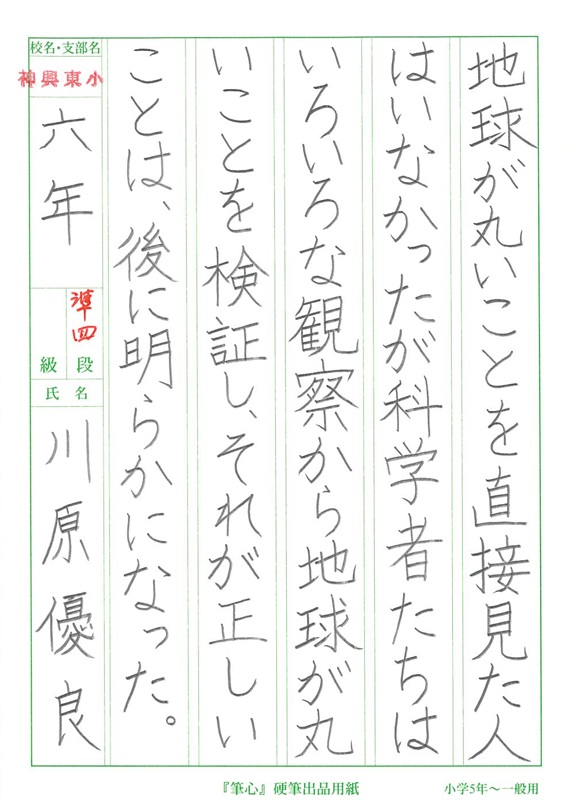 地球が丸いことを直接見た人
はいなかったが科学者たちは
いろいろな観察から地球が丸
いことを検証し、それが正しい
ことは、後に明らかになった。
校名・支部名
神興東小
六年
準四
段
級
氏名
川原優良
『筆心』硬筆出品用紙
小学5年〜一般用